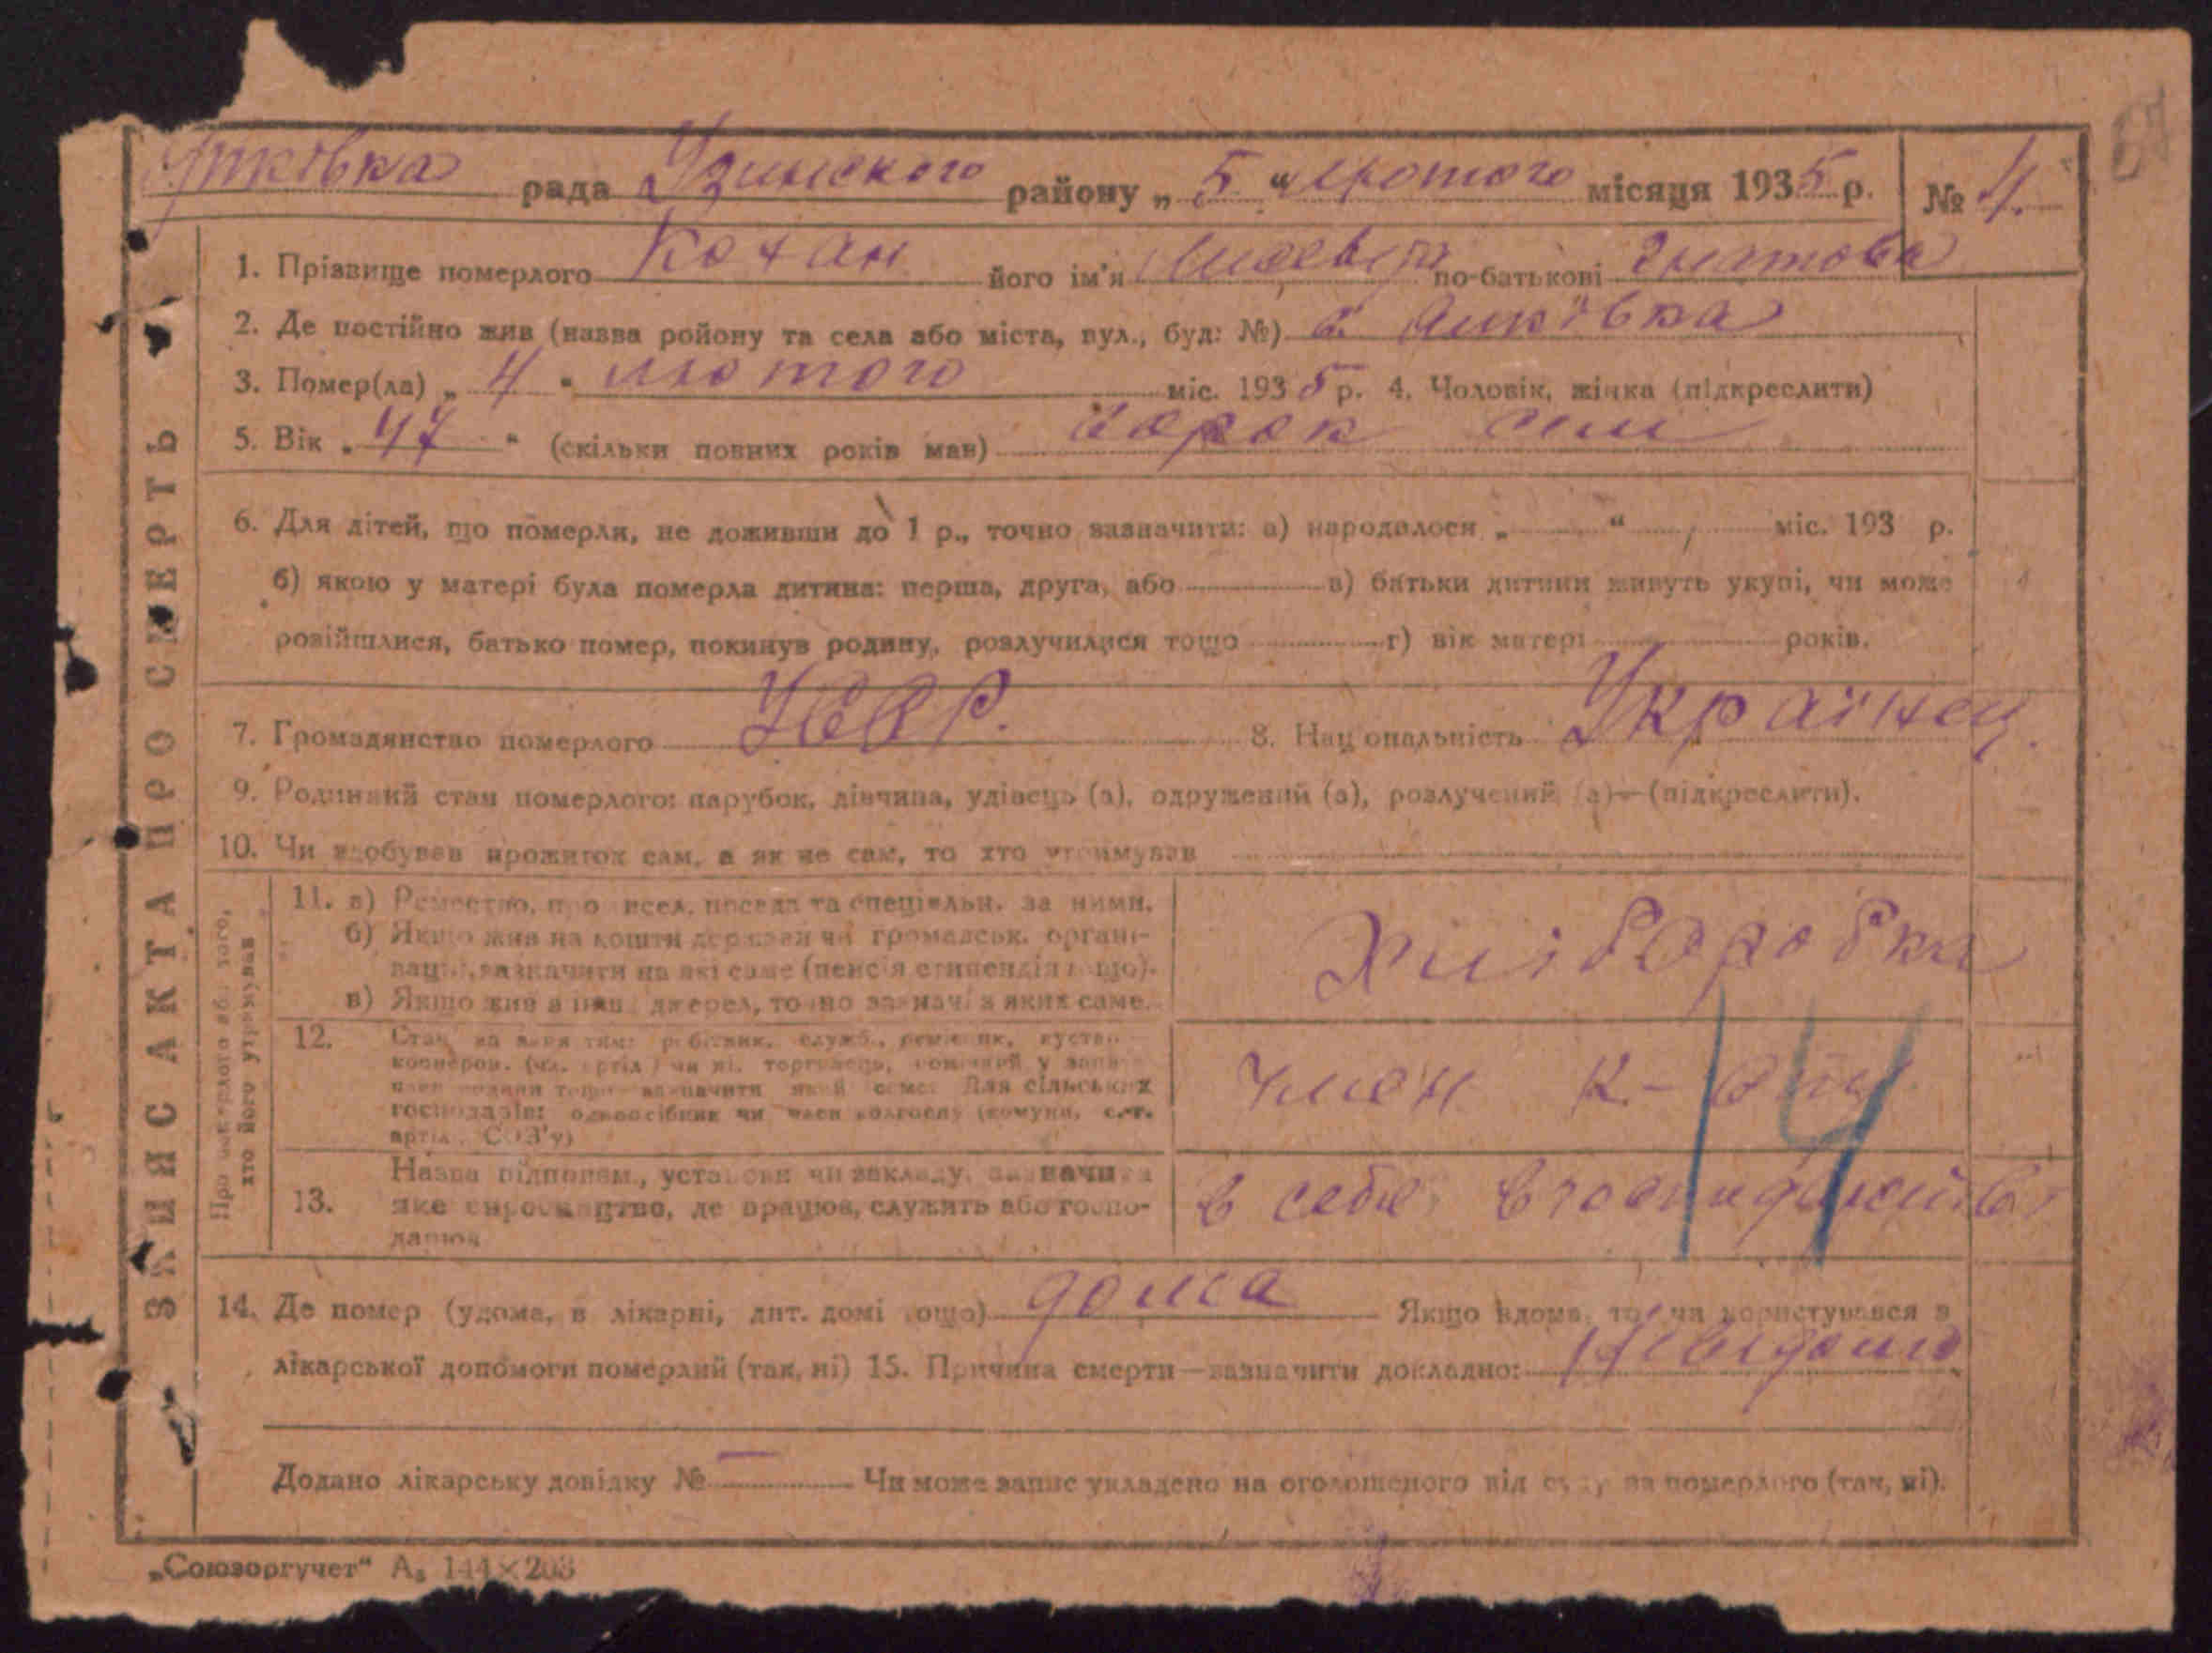 рада Узинского району „ 5 “ лютого місяця 1935 р. № 4.
67
1. Прізвище померлого Кохан його ім'я по-батькові Гнатова
2. Де постійно жив (назва ройону та села або міста, вул., буд: №) с. Янківка
3. Помер(ла) „ 4 " лютого міс. 1935 р. 4. Чоловік, жінка (підкреслити)
5. Вік „ 47 “ (скільки повних років мав) сорок сим
6. Для дітей, що померли, не доживши до 1 р., точно зазначити: а) народилося „ “ міс. 193 р.
б) якою у матері була померла дитина: перша, друга, або в) батьки дитини живуть укупі, чи може
розійшлися, батько помер, покинув родину, розлучилися тощо г) вік матері років.
7. Громадянство померлого УССР. 8. Національність Українец.
9. Родинний стан померлого: парубок, дівчина, удівець (а), одружений (а), розлучений (а)—(підкреслити).
10. Чи здобував прожиток сам, а як не сам, то хто утримував
Про померлого або того, хто його утримував
11. а) Ремество, професія, посада та спеціяльн. за ними.
б) Якщо жив на кошти держави чи громадськ. органі-
зації, зазначити на які саме (пенсія стипендія тощо).
в) Якщо жив з інш. джерел, точно зазнач. з яких саме.
Хліборобка
12. служб., торговець,
Для сільських
господарів: одноосібник чи член колгоспу (комуни, с.-г.
артіл., СОЗ'у)
член к-спу
14
13. Назва підприєм., установи чи закладу, зазначити
яке виробництво, де працював, служить або госпо-
дарює
в себе в господарстві
14. Де помер (удома, в лікарні, дит. домі тощо) дома Якщо вдома, то чи користувався з
лікарської допомоги померлий (так, ні) 15. Причина смерти—зазначити докладно: Невідомо
Додано лікарську довідку № — Чи може запис укладено на оголошеного від суду за померлого (так, ні).
ЗАПИС АКТА ПРО СМЕРТЬ
„Союзоргучет“ А₅ 144×203